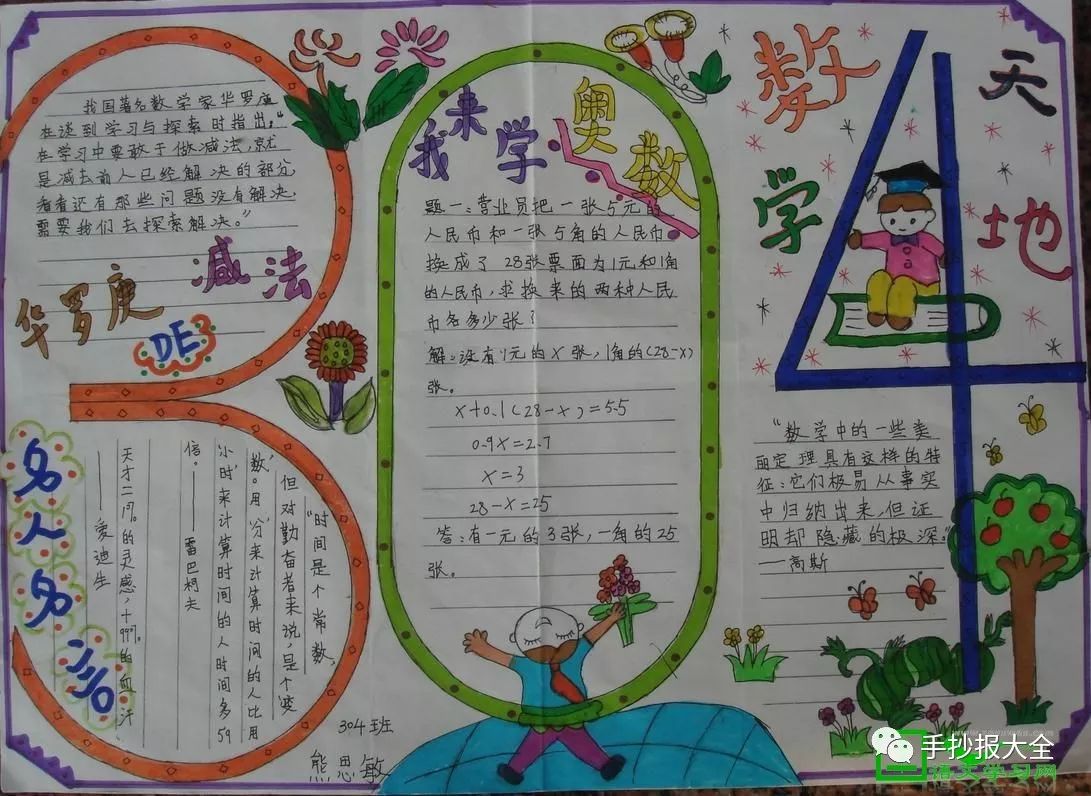 我国著名数学家华罗庚
在谈到学习与探索时指出:“
在学习中要敢于做减法,就
是减去前人已经解决的部分,
看看还有那些问题没有解决,
需要我们去探索解决。”
华罗庚
DE
减法
名人名言
“时间是个常数,
但对勤奋者来说,是个‘变
数’。用‘分’来计算时间的人比用
‘小时’来计算时间的人时间多59
倍。——雷巴柯夫
天才=1%的灵感,+99%的血汗
——爱迪生
304班
熊思敏
我来学奥数
题一:营业员把一张5元的
人民币和一张5角的人民币
换成了28张票面为1元和1角
的人民币,求换来的两种人民
币各多少张?
解:设有1元的x张,1角的(28-x)
张。
x+0.1(28-x)=5.5
0.9x=2.7
x=3
28-x=25
答:有一元的3张,一角的25
张。
数学天地
“数学中的一些美
丽定理具有这样的特
征:它们极易从事实
中归纳出来,但证
明却隐藏的极深。”
——高斯
手抄报大全
语文学习网